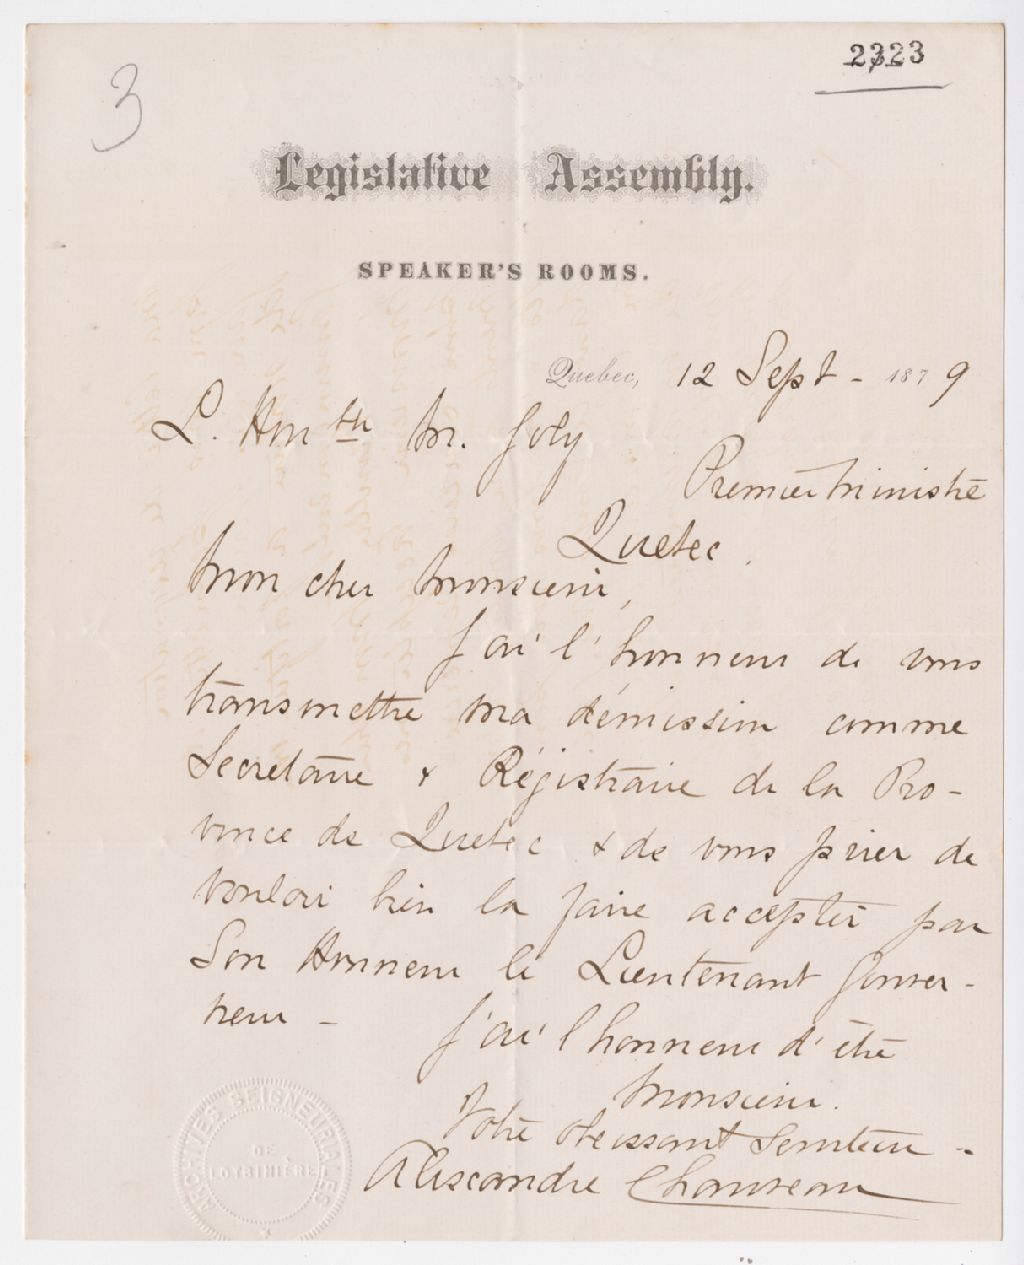 2323
3
Legislative Assembly.
SPEAKER'S ROOMS.
Quebec, 12 Sept - 1879
L. Hon ble M. Joly
Premier Ministre
Quebec.
Mon cher Monsieur,
J'ai l'honneur de vous
transmettre ma démission comme
Secretaire & Régistraire de la Pro-
vince de Quebec & de vous prier de
vouloir bien la faire accepter par
Son Honneur le Lieutenant Gouver-
neur -
J'ai l'honneur d'être
Monsieur.
Votre obeissant serviteur -
Alexandre Chauveau
ARCHIVES SEIGNEURIALES
DE
LOTBINIÈRE